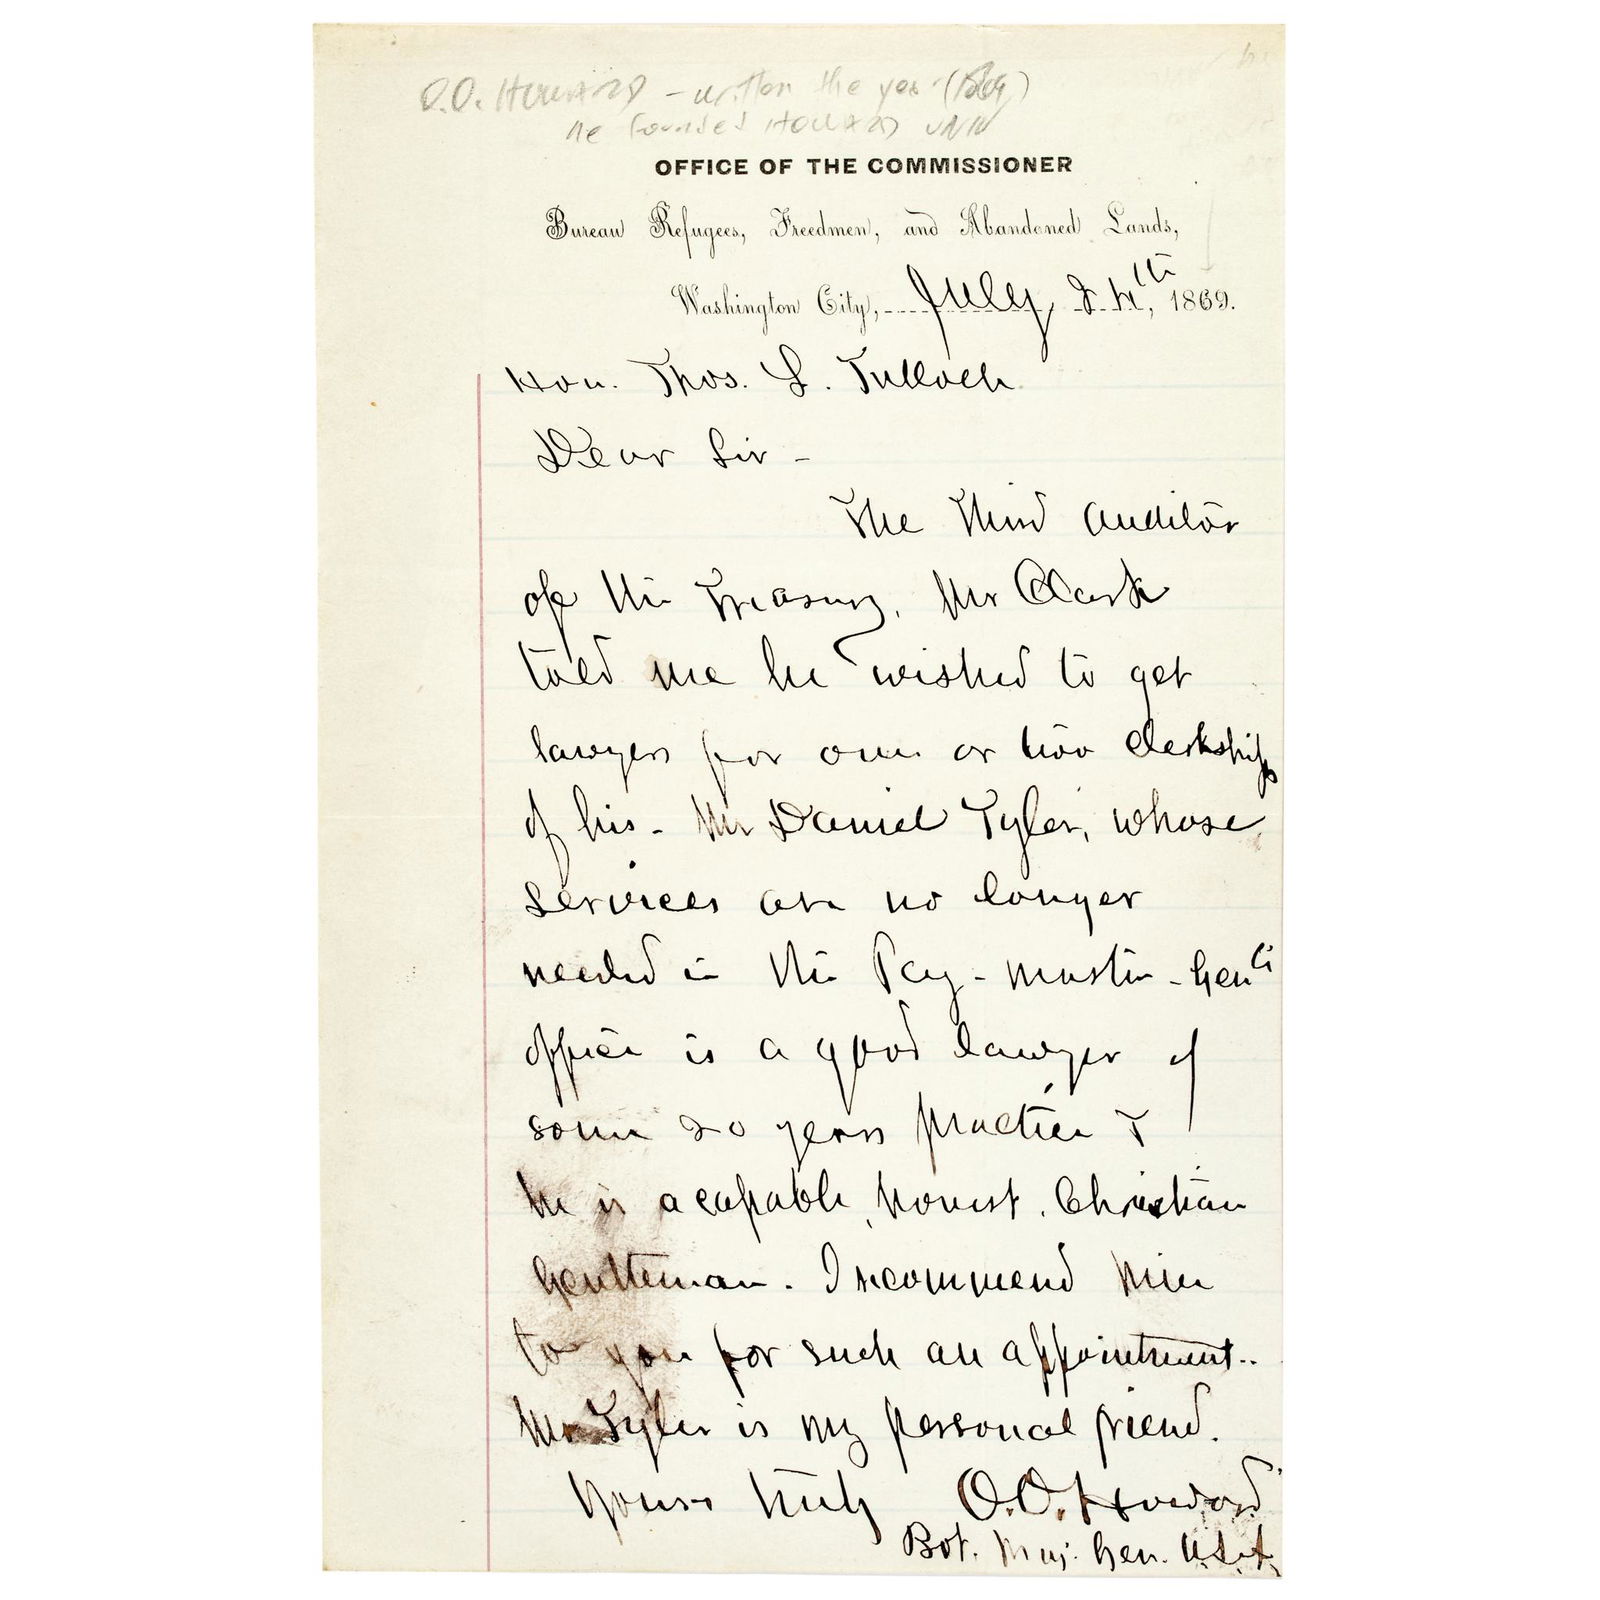 O.O. HOWARD - written the year (1869)
he founded HOWARD UNIV
OFFICE OF THE COMMISSIONER
Bureau Refugees, Freedmen, and Abandoned Lands,
Washington City, July 24th, 1869.
Hon. Thos. L. Tulloch
Dear Sir -
The Third Auditor
of the Treasury, Mr Clark
told me he wished to get
lawyers for one or two clerkships
of his - Mr Daniel Tyler, whose
services are no longer
needed in the Pay-master-Genl's
office is a good lawyer of
some 20 years practice &
he is a capable, honest, Christian
Gentleman. I recommend him
to you for such an appointment.
Mr Tyler is my personal friend.
Yours truly O.O. Howard
Bvt. Maj. Gen. U.S.A.